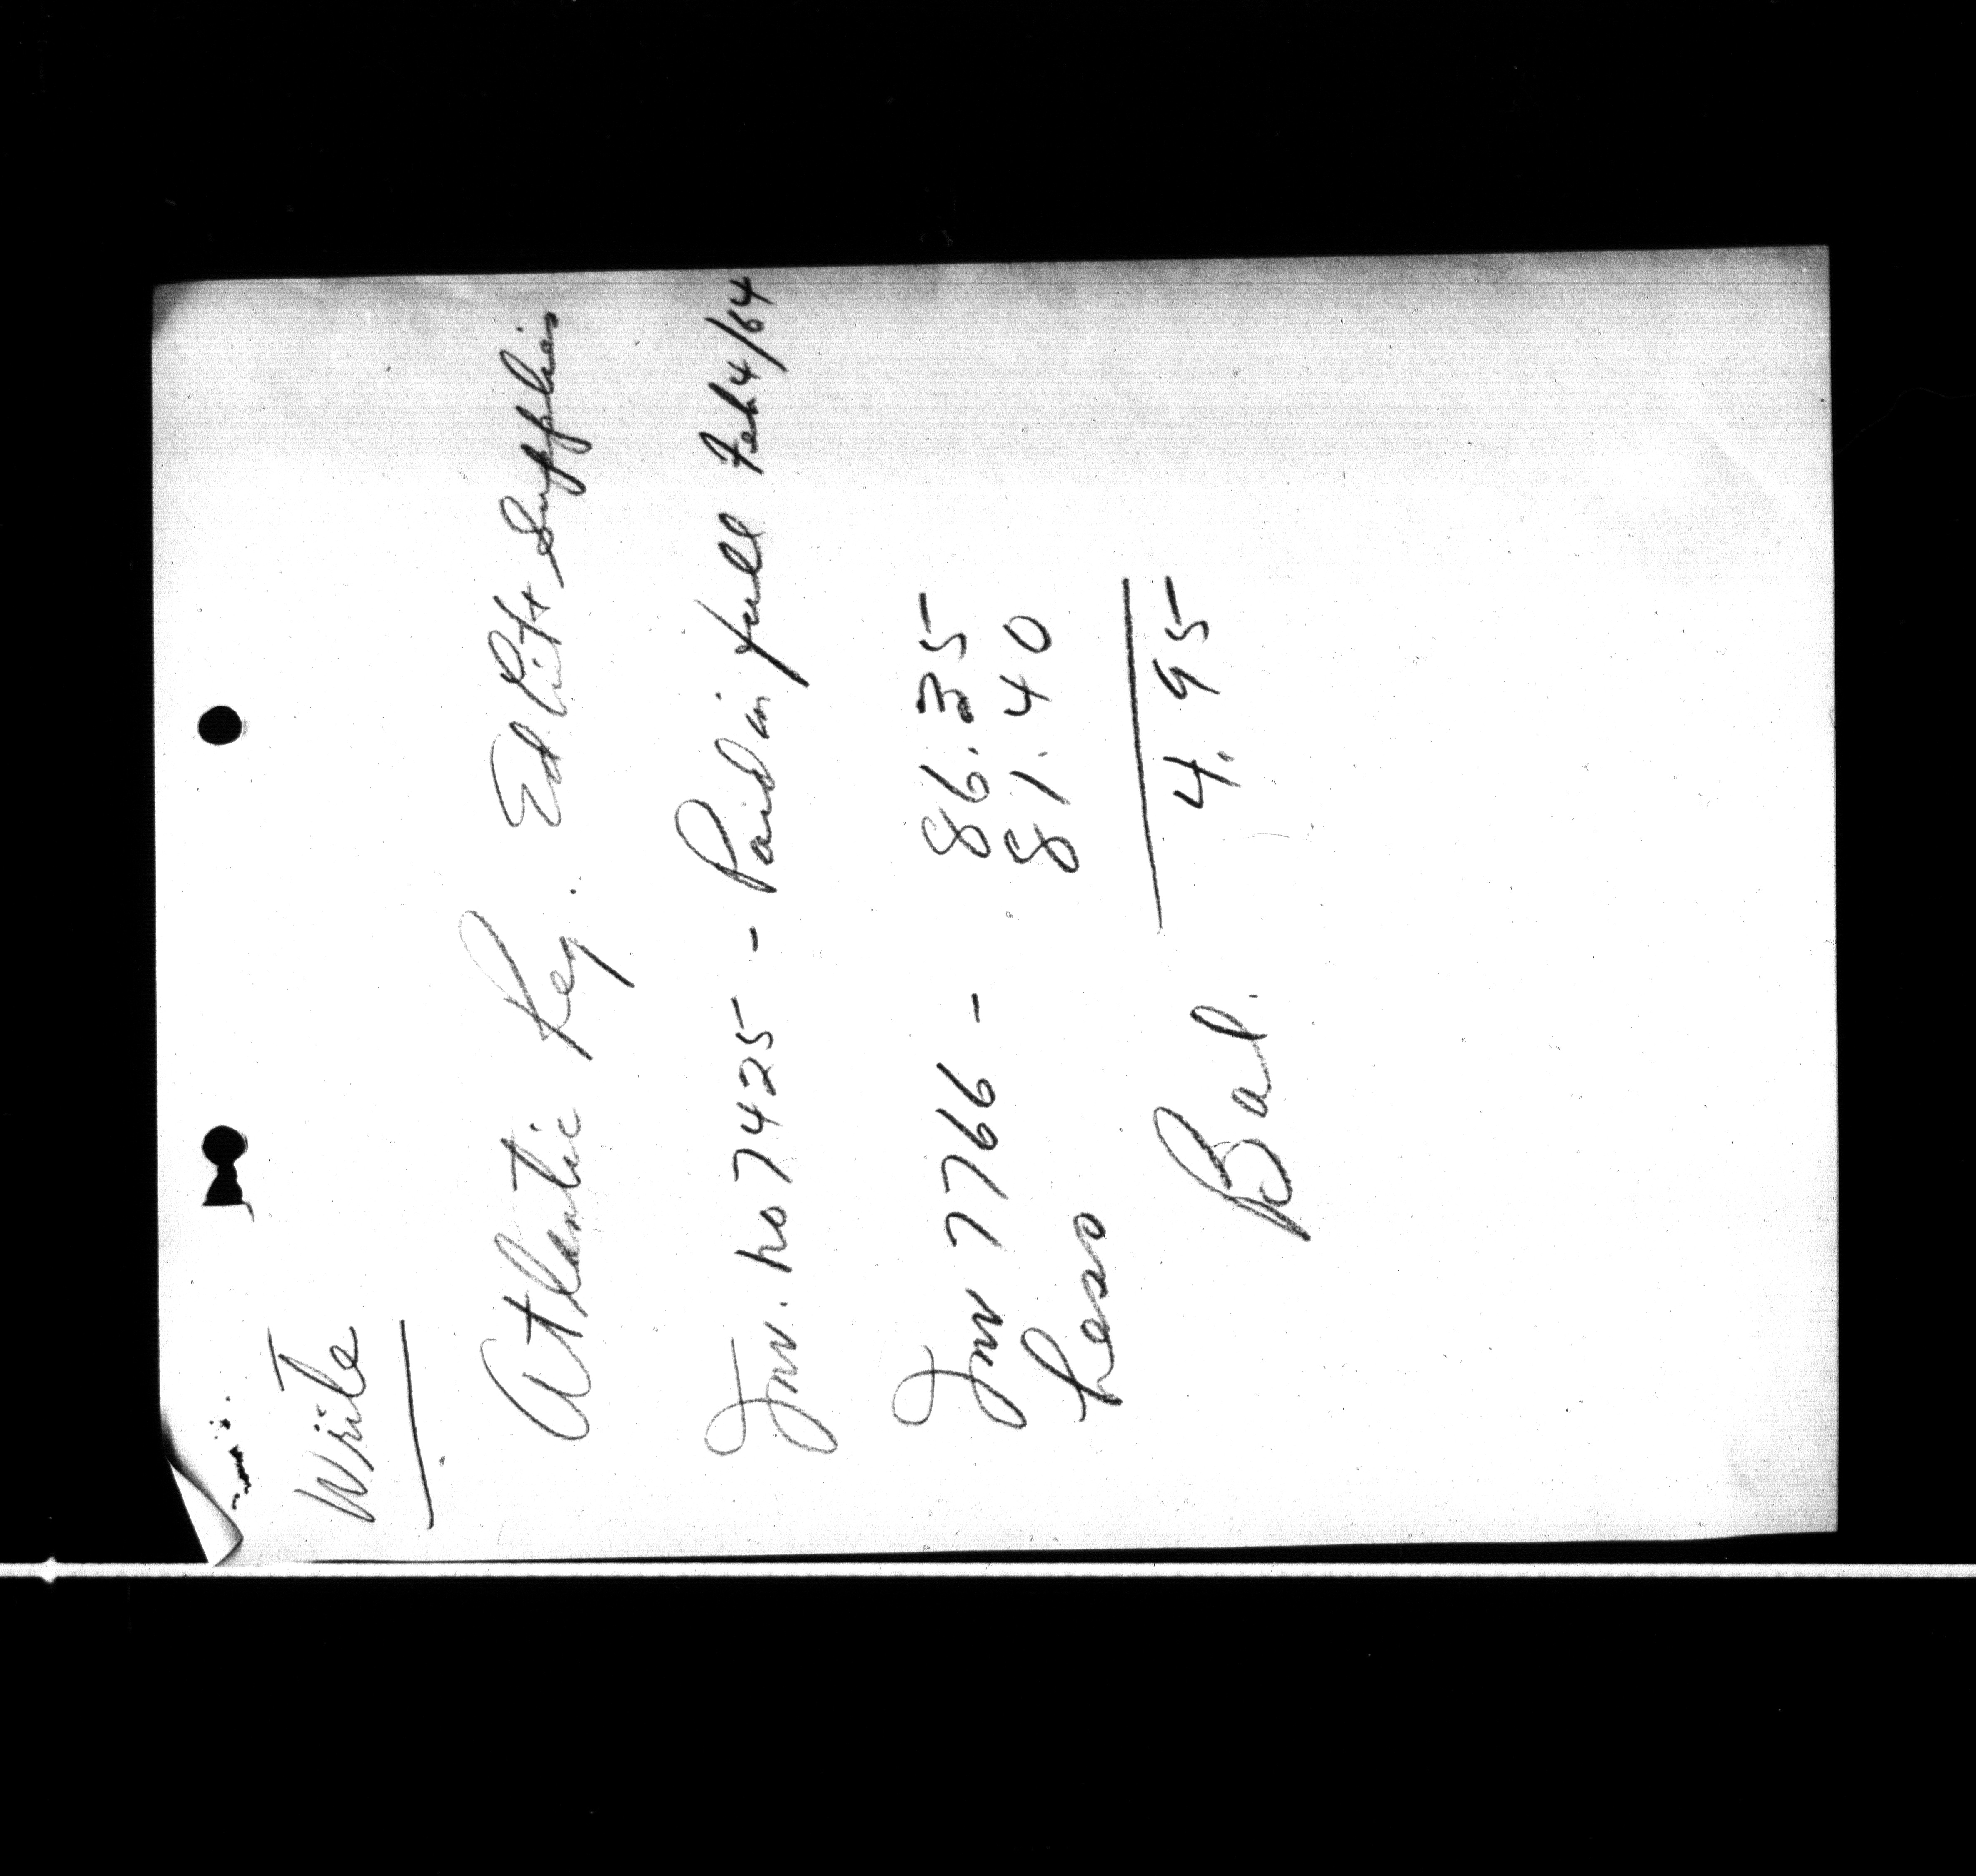 Write
Atlantic Reg. Ed Supplies
Inv. no 7425 - Paid in full Feb 4/64
Inv 7766 - 86.35
Less 81.40
Bal. 4.95